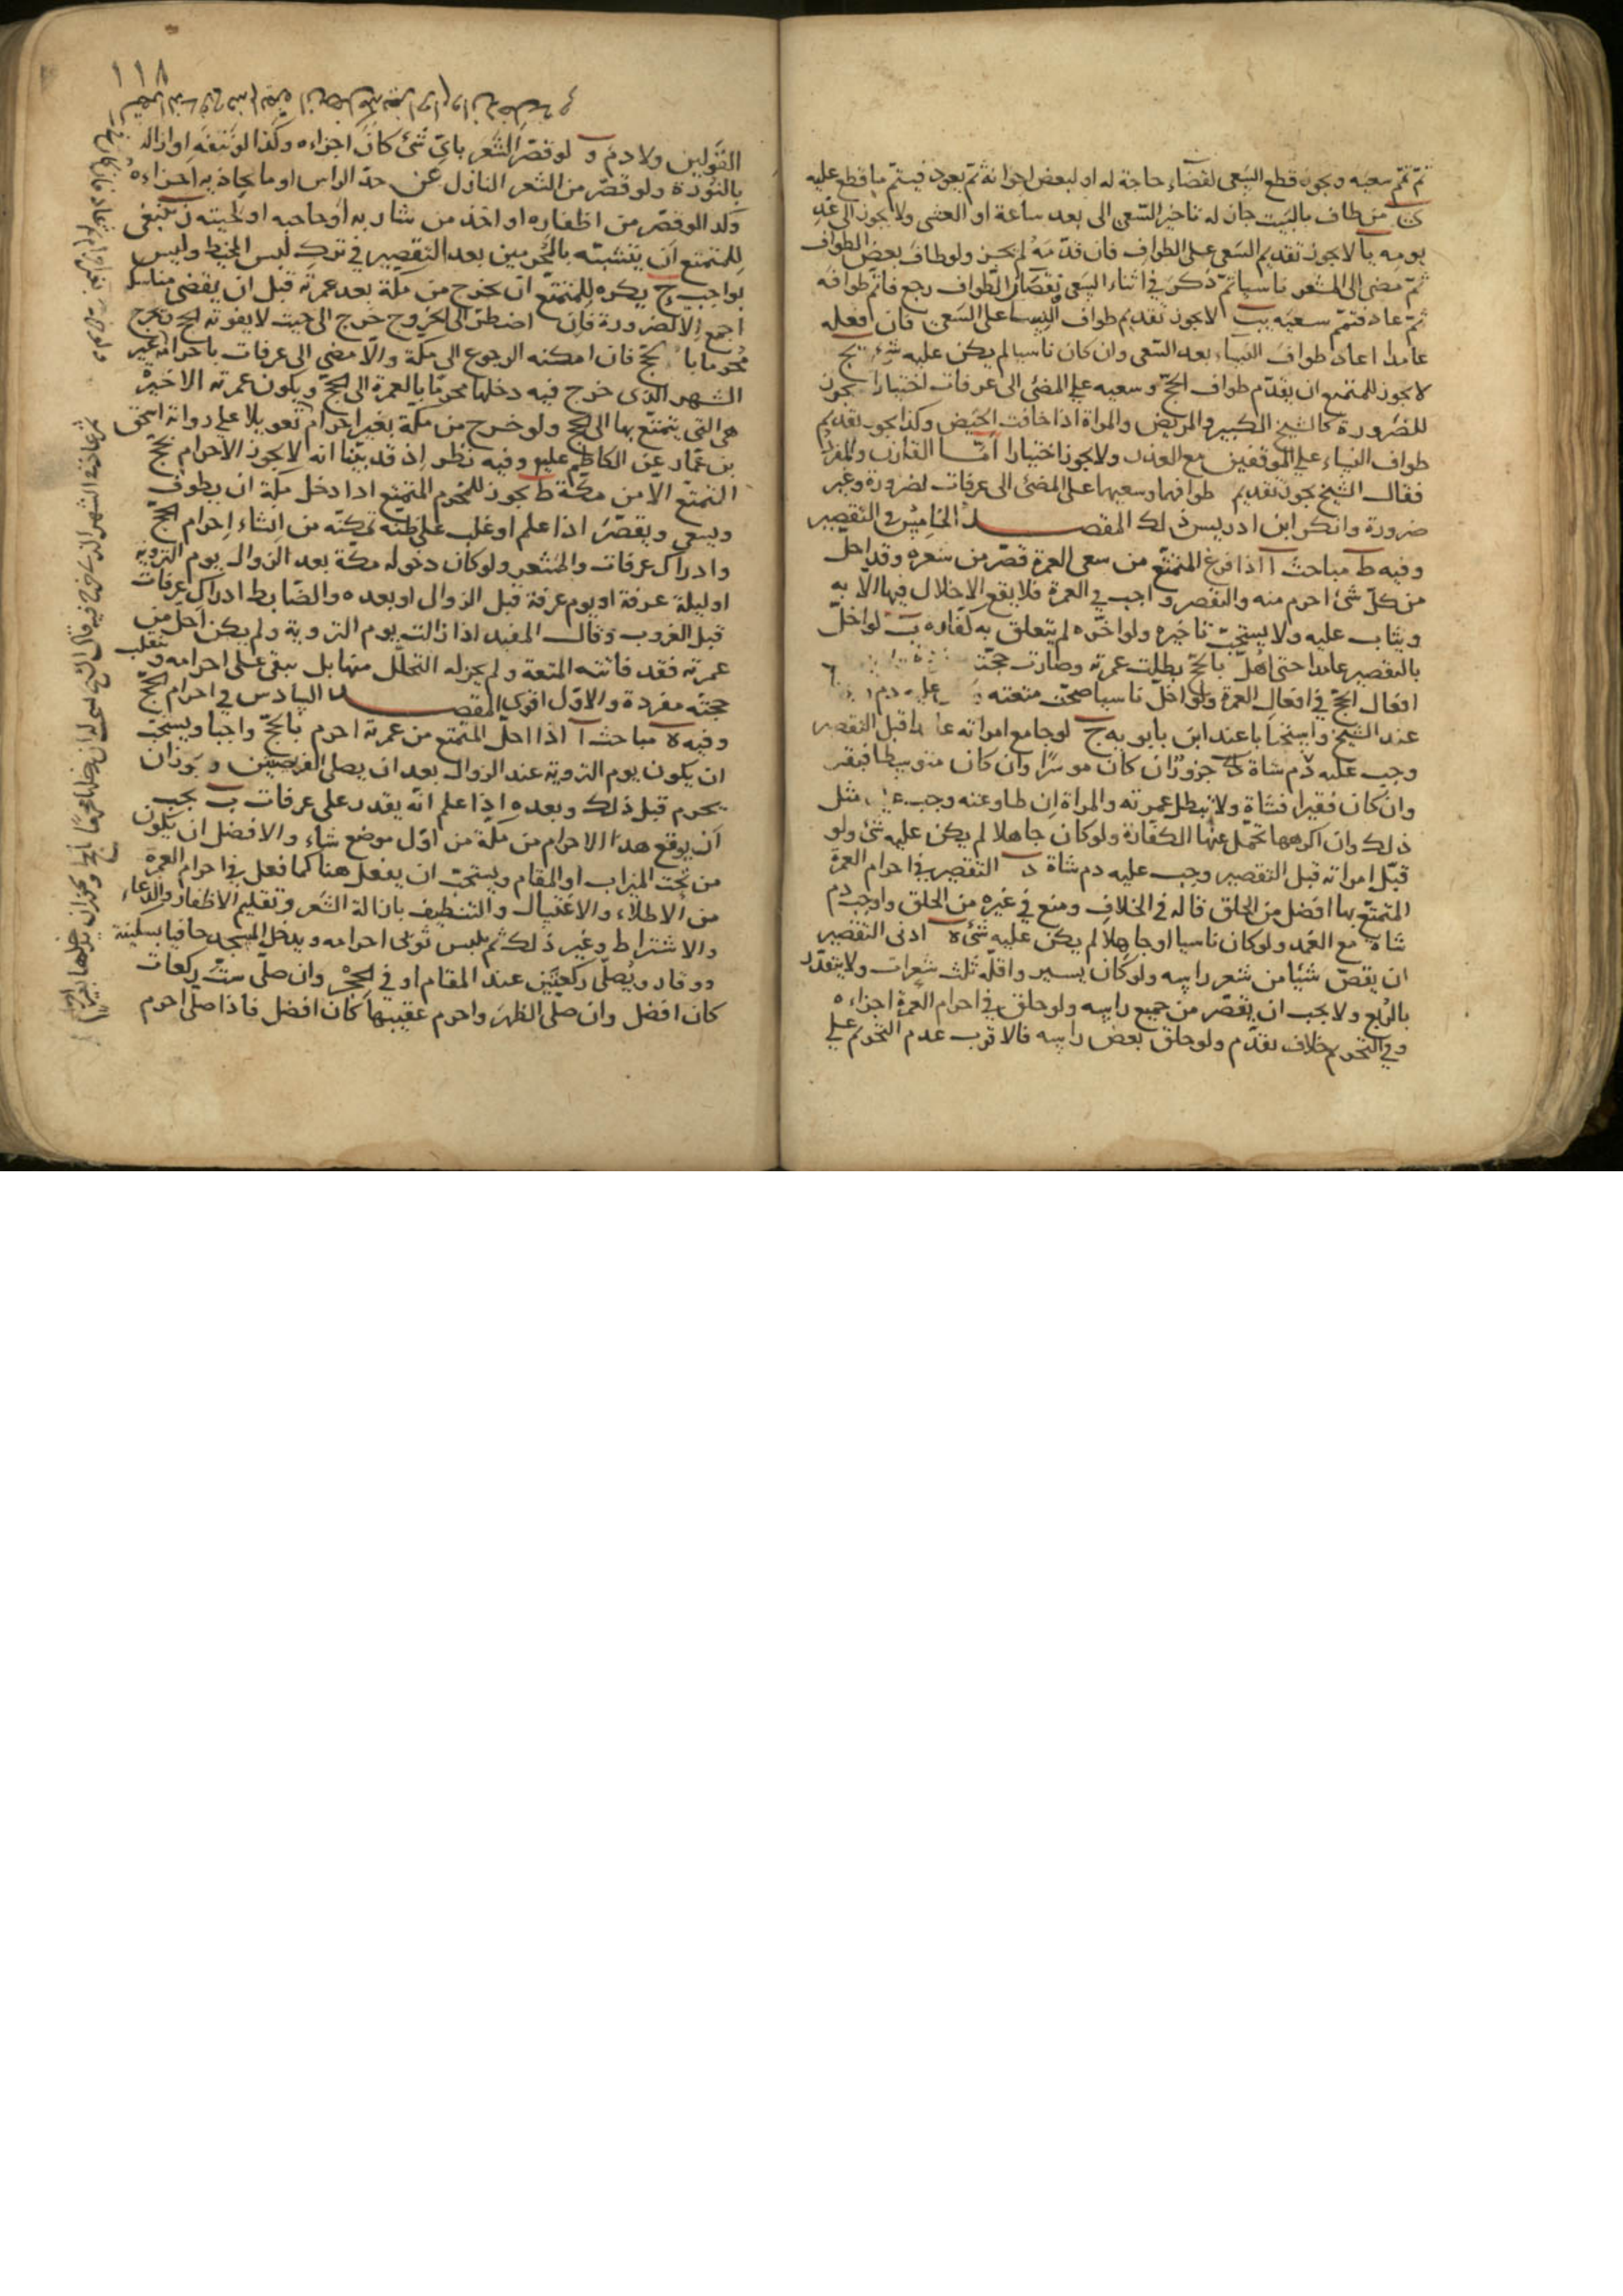 ثم تمم سعيه ويجوز قطع السعى لقضاء حاجة له او لبعض اخوانه ثم يعود فيتم ما قطع عليه
ى من طاف بالبيت جاز له تاخير السعى الى بعد ساعة او العشى ولا يجوز الى غد
يومه يا لا يجوز تقديم السعى على الطواف فان قدمه لم يجز ولو طاف بعض الطواف
ثم مضى الى المشعر ناسيا ثم ذكر فى اثناء السعى نقصان الطواف رجع فاتم طوافه
ثم عاد فتمم سعيه يب لا يجوز تقديم طواف النساء على السعى فان فعله
عامدا اعاد طواف النساء بعد السعى وان كان ناسيا لم يكن عليه شىء يج
لا يجوز للمتمتع ان يقدم طواف الحج وسعيه على المضى الى عرفات اختيارا يجوز
للضرورة كالشيخ الكبير والمريض والمراة اذا خافت الحيض وكذا يجوز تقديم
طواف النساء على الموقفين مع العذر ولا يجوز اختيارا اما القارن والمفرد
فقال الشيخ يجوز تقديم طوافهما وسعيهما على المضى الى عرفات لضرورة وغير
ضرورة وانكر ابن ادريس ذلك المقصد الخامس فى التقصير
وفيه ط مباحث آ اذا فرغ المتمتع من سعى العمرة قصر من شعره وقد احل
من كل شئ احرم منه والتقصير واجب فى العمرة فلا يقع الاحلال فيها الا به
ويثاب عليه ولا يستحب تاخيره ولو اخره لم يتعلق به كفارة ب لو اخل
بالتقصير عامدا حتى اهل بالحج بطلت عمرته وصارت حجته
افعال الحج فى افعال العمرة ولو اخل ناسيا صحت متعته عليه دم
عند الشيخ واستحبابا عند ابن بابويه ج لو جامع امراته عامدا قبل التقصير
وجب عليه جزور ان كان موسرا وان كان متوسطا فبقر
وان كان فقيرا فشاة ولا تبطل عمرته والمراة ان طاوعته وجب عليها مثل
ذلك وان اكرهها تحمل عنها الكفارة ولو كان جاهلا لم يكن عليه شئ ولو
قبل امراته قبل التقصير وجب عليه دم شاة د التقصير فى احرام العمرة
المتمتع بها افضل من الحلق قاله فى الخلاف ومنع فى غيره من الحلق واوجب دم
شاة مع العمد ولو كان ناسيا او جاهلا لم يكن عليه شئ ه ادنى التقصير
ان يقص شيئا من شعر راسه ولو كان يسير واقله ثلث شعرات ولا يتقدر
بالربع ولا يجب ان يقصر من جميع راسه ولو حلق فى احرام العمرة اجزاءه
وفى التحريم خلاف تقدم ولو حلق بعض راسه فالاقرب عدم التحريم على
١١٨
القولين ولا دم و لو قصر الشعر باى شئ كان اجزاءه وكذا لو نتفه او ازاله
بالنورة ولو قصر من الشعر النازل عن حد الراس او ما يحاذيه اجزاءه
وكذا لو قصر من اظفاره او اخذ من شاربه او حاجبه او لحيته ز ينبغى
للمتمتع ان يتشبه بالمحرمين بعد التقصير فى ترك لبس المخيط وليس
بواجب ح يكره للمتمتع ان يخرج من مكة بعد عمرته قبل ان يقضى مناسكه
اجمع الا لضرورة فان اضطر الى الخروج خرج الى حيث لا يفوته الحج ويخرج
محرما بالحج فان امكنه الرجوع الى مكة والا مضى الى عرفات باحرامه غير
الشهر الذى خرج فيه دخلها محرما بالعمرة الى الحج ويكون عمرته الاخيرة
هى التى يتمتع بها الى الحج ولو خرج من مكة بغير احرام تعويلا على رواية اسحق
بن عمار عن الكاظم عليه وفيه نظر اذ قد بينا انه لا يجوز الاحرام بحج
التمتع الا من مكة ط يجوز للمحرم المتمتع اذا دخل مكة ان يطوف
ويسعى ويقصر اذا علم او غلب على ظنه تمكنه من انشاء احرام الحج
وادراك عرفات والمشعر ولو كان دخوله مكة بعد الزوال يوم التروية
او ليلة عرفة او يوم عرفة قبل الزوال او بعده والضابط ادراك عرفات
قبل الغروب وقال المفيد اذا زالت يوم التروية ولم يكن احل من
عمرته فقد فاتته المتعة ولم يجز له التحلل منها بل يبقى على احرامه وتنقلب
حجته مفردة والاول اقوى المقصد السادس فى احرام الحج
وفيه ه مباحث آ اذا احل المتمتع من عمرته احرم بالحج واجبا ويستحب
ان يكون يوم التروية عند الزوال بعد ان يصلى الفريضتين ويجوز ان
يحرم قبل ذلك وبعده اذا علم انه يقدر على عرفات ب يجب
ان يوقع هذا الاحرام من مكة من اول موضع شاء والافضل ان يكون
من تحت الميزاب او المقام ويستحب ان يفعل هنا كما فعل فى احرام العمرة
من الاطلاء والاغتسال والتنظيف بازالة الشعر وتقليم الاظفار والدعاء
والاشتراط وغير ذلك ثم يلبس ثوبى احرامه ويدخل المسجد حافيا بسكينة
ووقار ويصلى ركعتين عند المقام او فى الحجر وان صلى ست ركعات
كان افضل وان صلى الظهر واحرم عقيبها كان افضل فاذا صلى احرم